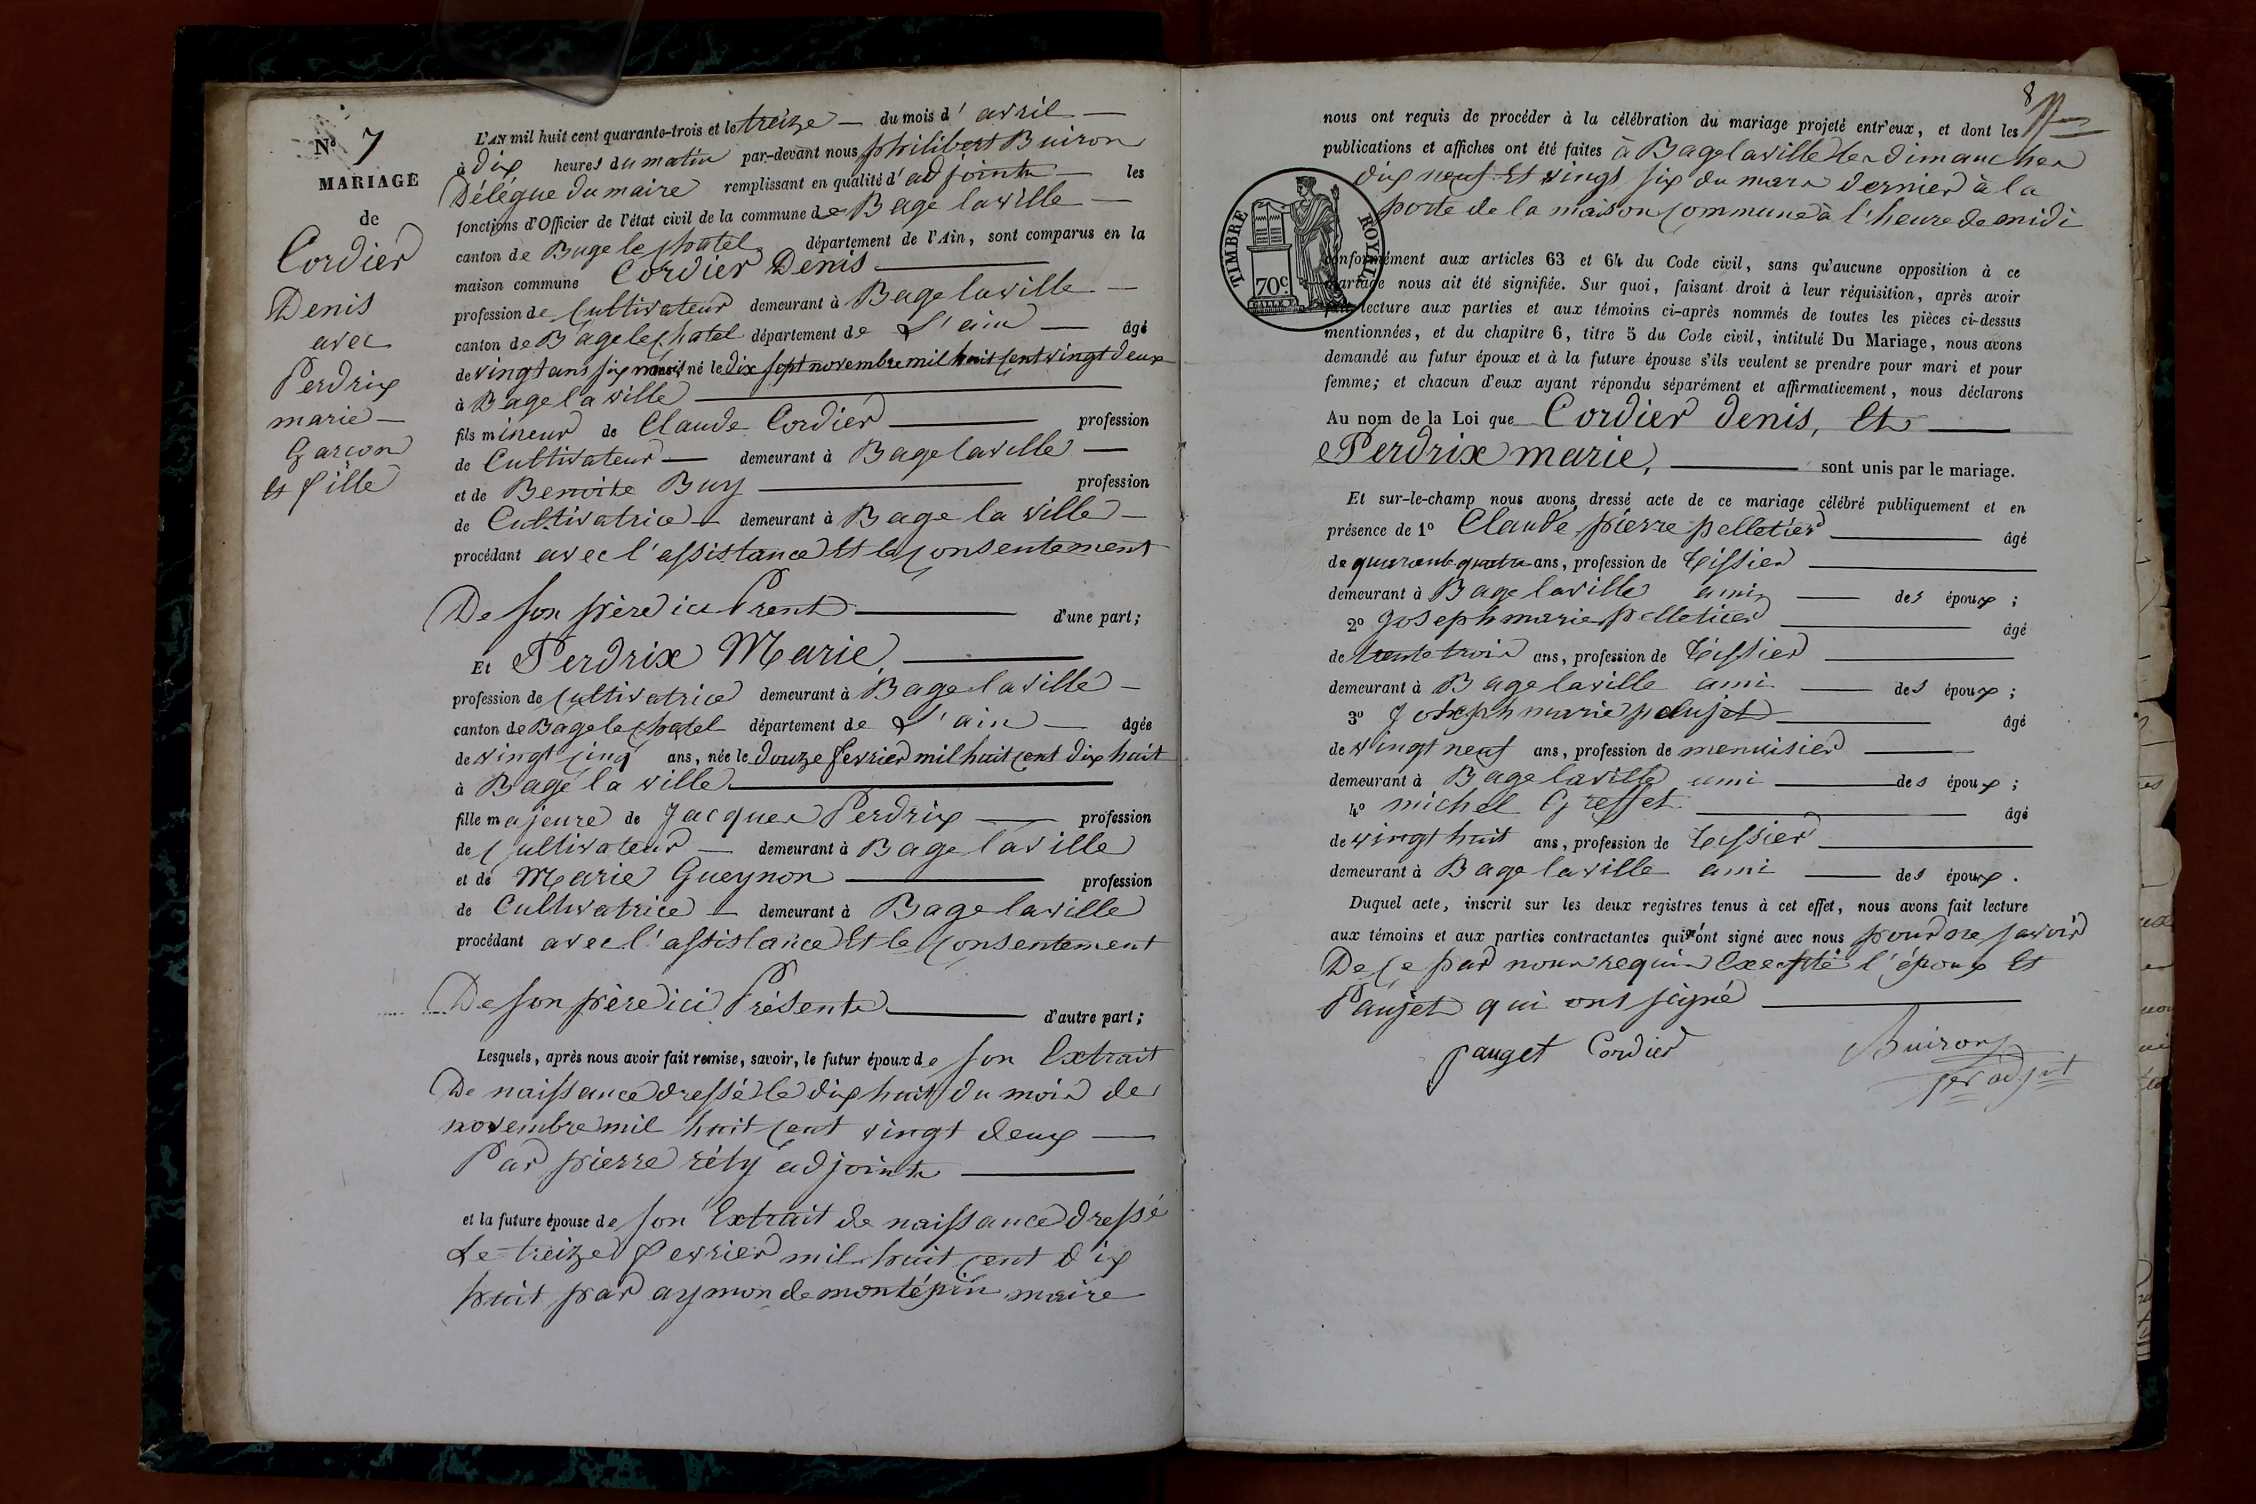 Nº 7
MARIAGE
de
Cordier
Denis
avec
Perdrix
marie
Garcon
et fille
L'AN mil huit cent quarante-trois et le treize du mois d' avril
à dix heures du matin par-devant nous philibert Buiron
Délégue du maire remplissant en qualité d' adjoint les
fonctions d'Officier de l'état civil de la commune de Bage laville
canton de Bage le chatel département de l'Ain, sont comparus en la
maison commune Cordier Denis
profession de Cultivateur demeurant à Bage laville
canton de Bage le chatel département de L'ain âgé
de vingt ans six mois né le dix sept novembre mil huit cent vingt deux
à Bage la ville
fils mineur de Claude Cordier profession
de Cultivateur demeurant à Bage laville
et de Benoite Buy profession
de Cultivatrice demeurant à Bage la ville
procédant avec l'assistance Et le consentement
De son père ici Prent d'une part;
Et Perdrix Marie,
profession de cultivatrice demeurant à Bage laville
canton de Bage le chatel département de L'ain âgée
de vingt cinq ans, née le douze fevrier mil huit cent dix huit
à Bage la ville
fille majeure de Jacques Perdrix profession
de Cultivateur demeurant à Bage laville
et de Marie Gueynon profession
de Cultivatrice demeurant à Bage laville
procédant avec l'assistance Et le consentement
De son père ici Présent d'autre part;
Lesquels, après nous avoir fait remise, savoir, le futur époux de son Extrait
De naissance dressé le dix huit du mois de
novembre mil huit cent vingt deux
Par pierre réty adjoint
et la future épouse de son Extrait de naissance dressé
Le treize fevrier mil huit cent dix
huit par aymon de montépin maire
8
nous ont requis de procéder à la célébration du mariage projeté entr'eux, et dont les
publications et affiches ont été faites à Bage laville les dimanches
dix neuf Et vingt six du mars dernier à la
porte de la maison commune à l'heure de midi
TIMBRE ROYAL
70c
conformément aux articles 63 et 64 du Code civil, sans qu'aucune opposition à ce
mariage nous ait été signifiée. Sur quoi, faisant droit à leur réquisition, après avoir
fait lecture aux parties et aux témoins ci-après nommés de toutes les pièces ci-dessus
mentionnées, et du chapitre 6, titre 5 du Code civil, intitulé Du Mariage, nous avons
demandé au futur époux et à la future épouse s'ils veulent se prendre pour mari et pour
femme; et chacun d'eux ayant répondu séparément et affirmativement, nous déclarons
Au nom de la Loi que Cordier denis, Et
Perdrix marie, sont unis par le mariage.
Et sur-le-champ nous avons dressé acte de ce mariage célébré publiquement et en
présence de 1º Claude pierre pelletier âgé
de quarante quatre ans, profession de tissier
demeurant à Bage laville ami des époux ;
2º Joseph marie pelletier âgé
de trente trois ans, profession de tissier
demeurant à Bage laville ami des époux ;
3º Joseph marie paujet âgé
de vingt neuf ans, profession de menuisier
demeurant à Bage laville ami des époux ;
4º michel Gresset âgé
de vingt huit ans, profession de tissier
demeurant à Bage laville ami des époux .
Duquel acte, inscrit sur les deux registres tenus à cet effet, nous avons fait lecture
aux témoins et aux parties contractantes qui n'ont signé avec nous pour ne savoir
De ce par nous requis Excepté l'époux Et
Paujet qui ont signé
pauget Cordier Buiron
1er adjoint